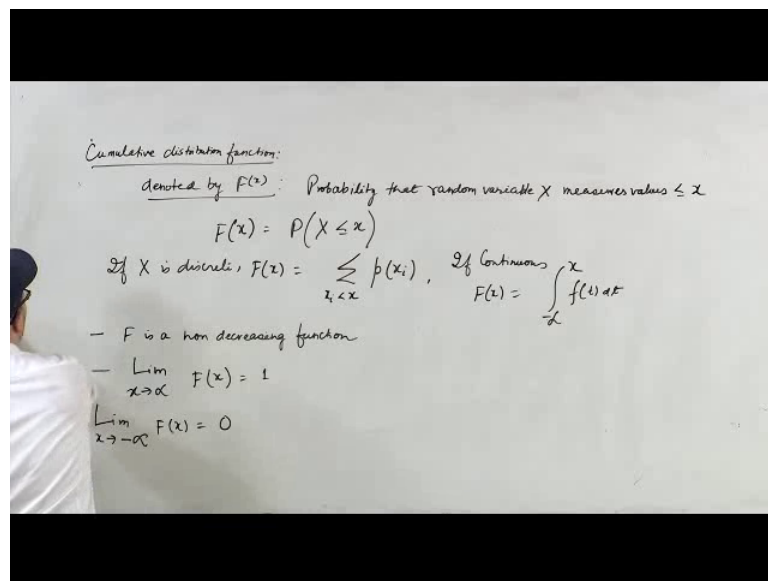 Cumulative distribution function:
denoted by F(x) : Probability that random variable X measures values ≤ x
F(x) = P(X ≤ x)
If X is discrete, F(x) = ∑ xᵢ < x p(xᵢ), If Continuous F(x) = ∫ -∞ x f(t) dt
— F is a non decreasing function
— Lim x→∞ F(x) = 1
Lim x→-∞ F(x) = 0